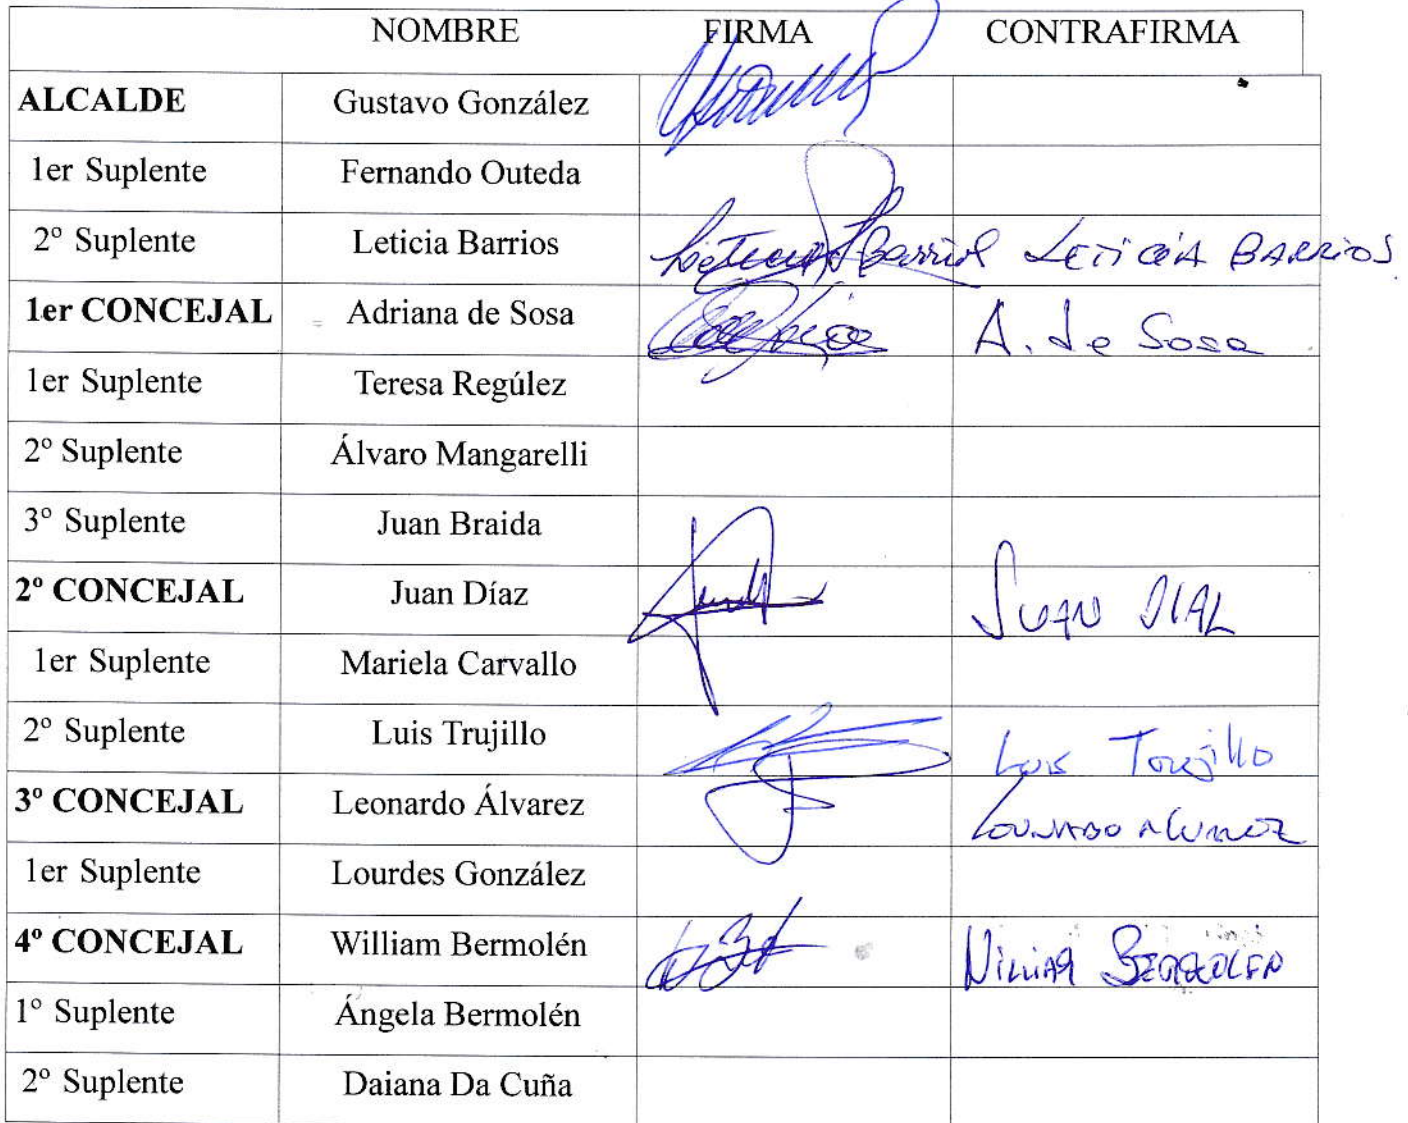 NOMBRE FIRMA CONTRAFIRMA
ALCALDE Gustavo González
1er Suplente Fernando Outeda
2º Suplente Leticia Barrios Leticia Barrios LETICIA BARRIOS
1er CONCEJAL Adriana de Sosa A. de Sosa
1er Suplente Teresa Regúlez
2º Suplente Álvaro Mangarelli
3º Suplente Juan Braida
2º CONCEJAL Juan Díaz JUAN DIAZ
1er Suplente Mariela Carvallo
2º Suplente Luis Trujillo Luis Trujillo
3º CONCEJAL Leonardo Álvarez
1er Suplente Lourdes González
4º CONCEJAL William Bermolén
1º Suplente Ángela Bermolén
2º Suplente Daiana Da Cuña